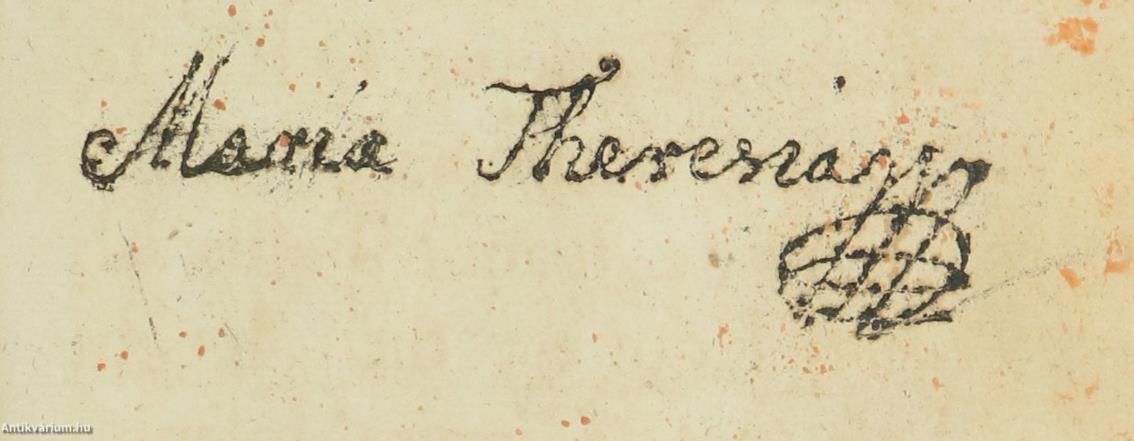 Maria Theresia
Antikvárium.hu